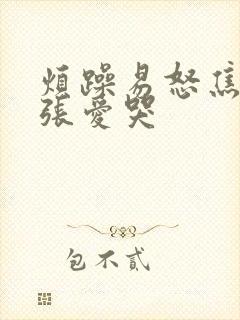 煩躁易怒焦
張愛哭
包不貳